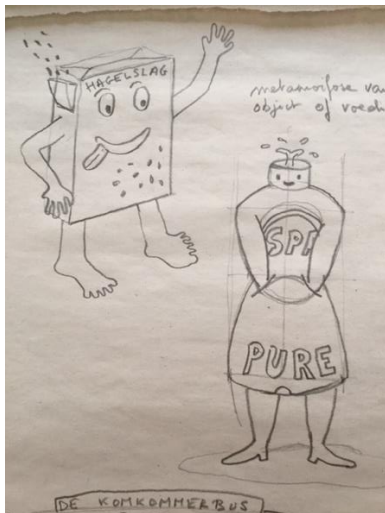 HAGELSLAG
metamorfose va
object of voedi
SPA
PURE
DE KOMKOMMERBUS